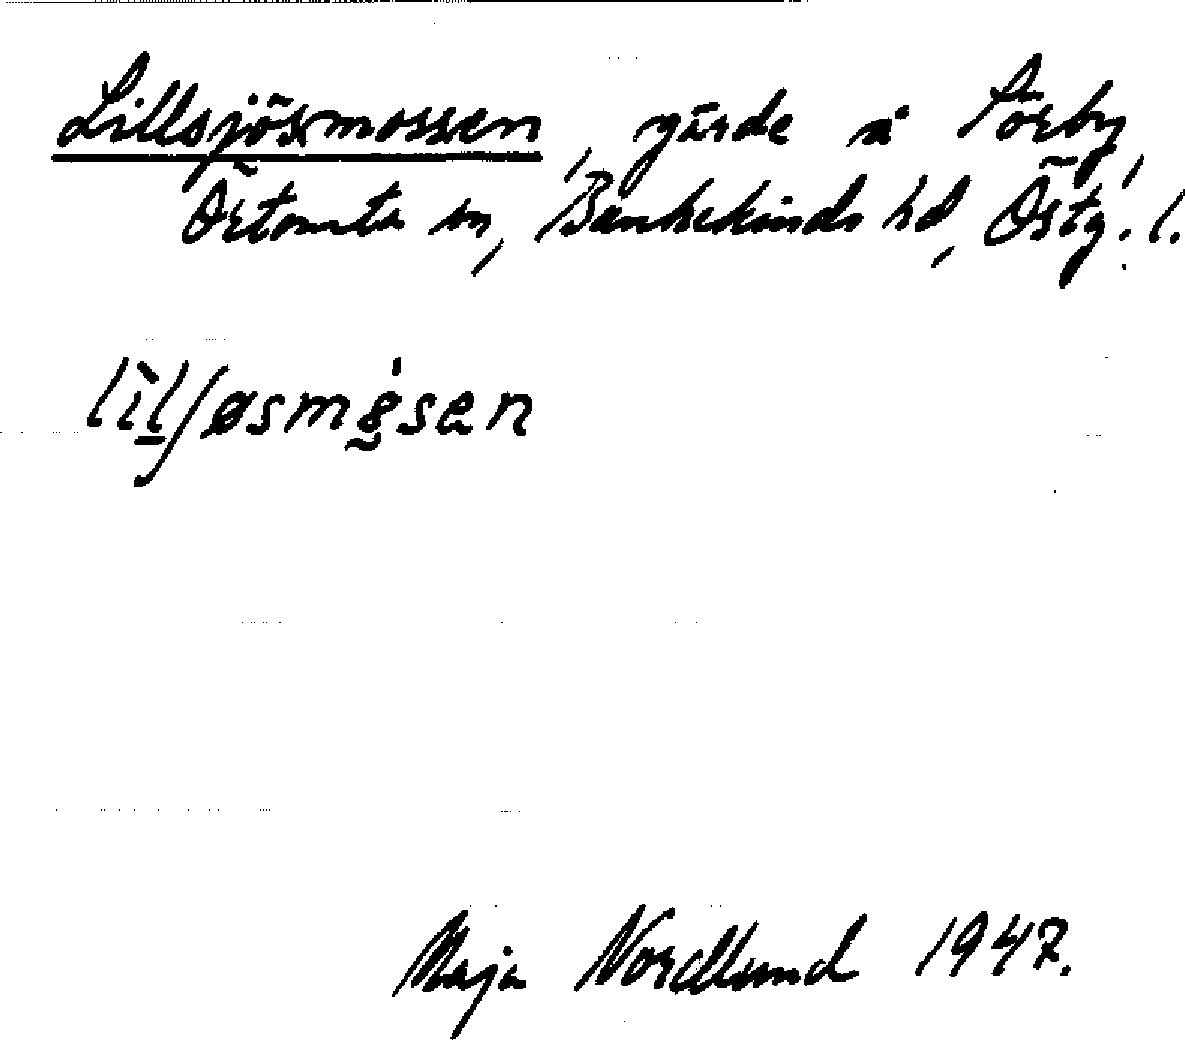 Lillsjösmossen, gärde å Törby,
Örtomta sn, Bankekinds hd, Östg. l.
Maja Nordlund 1947.